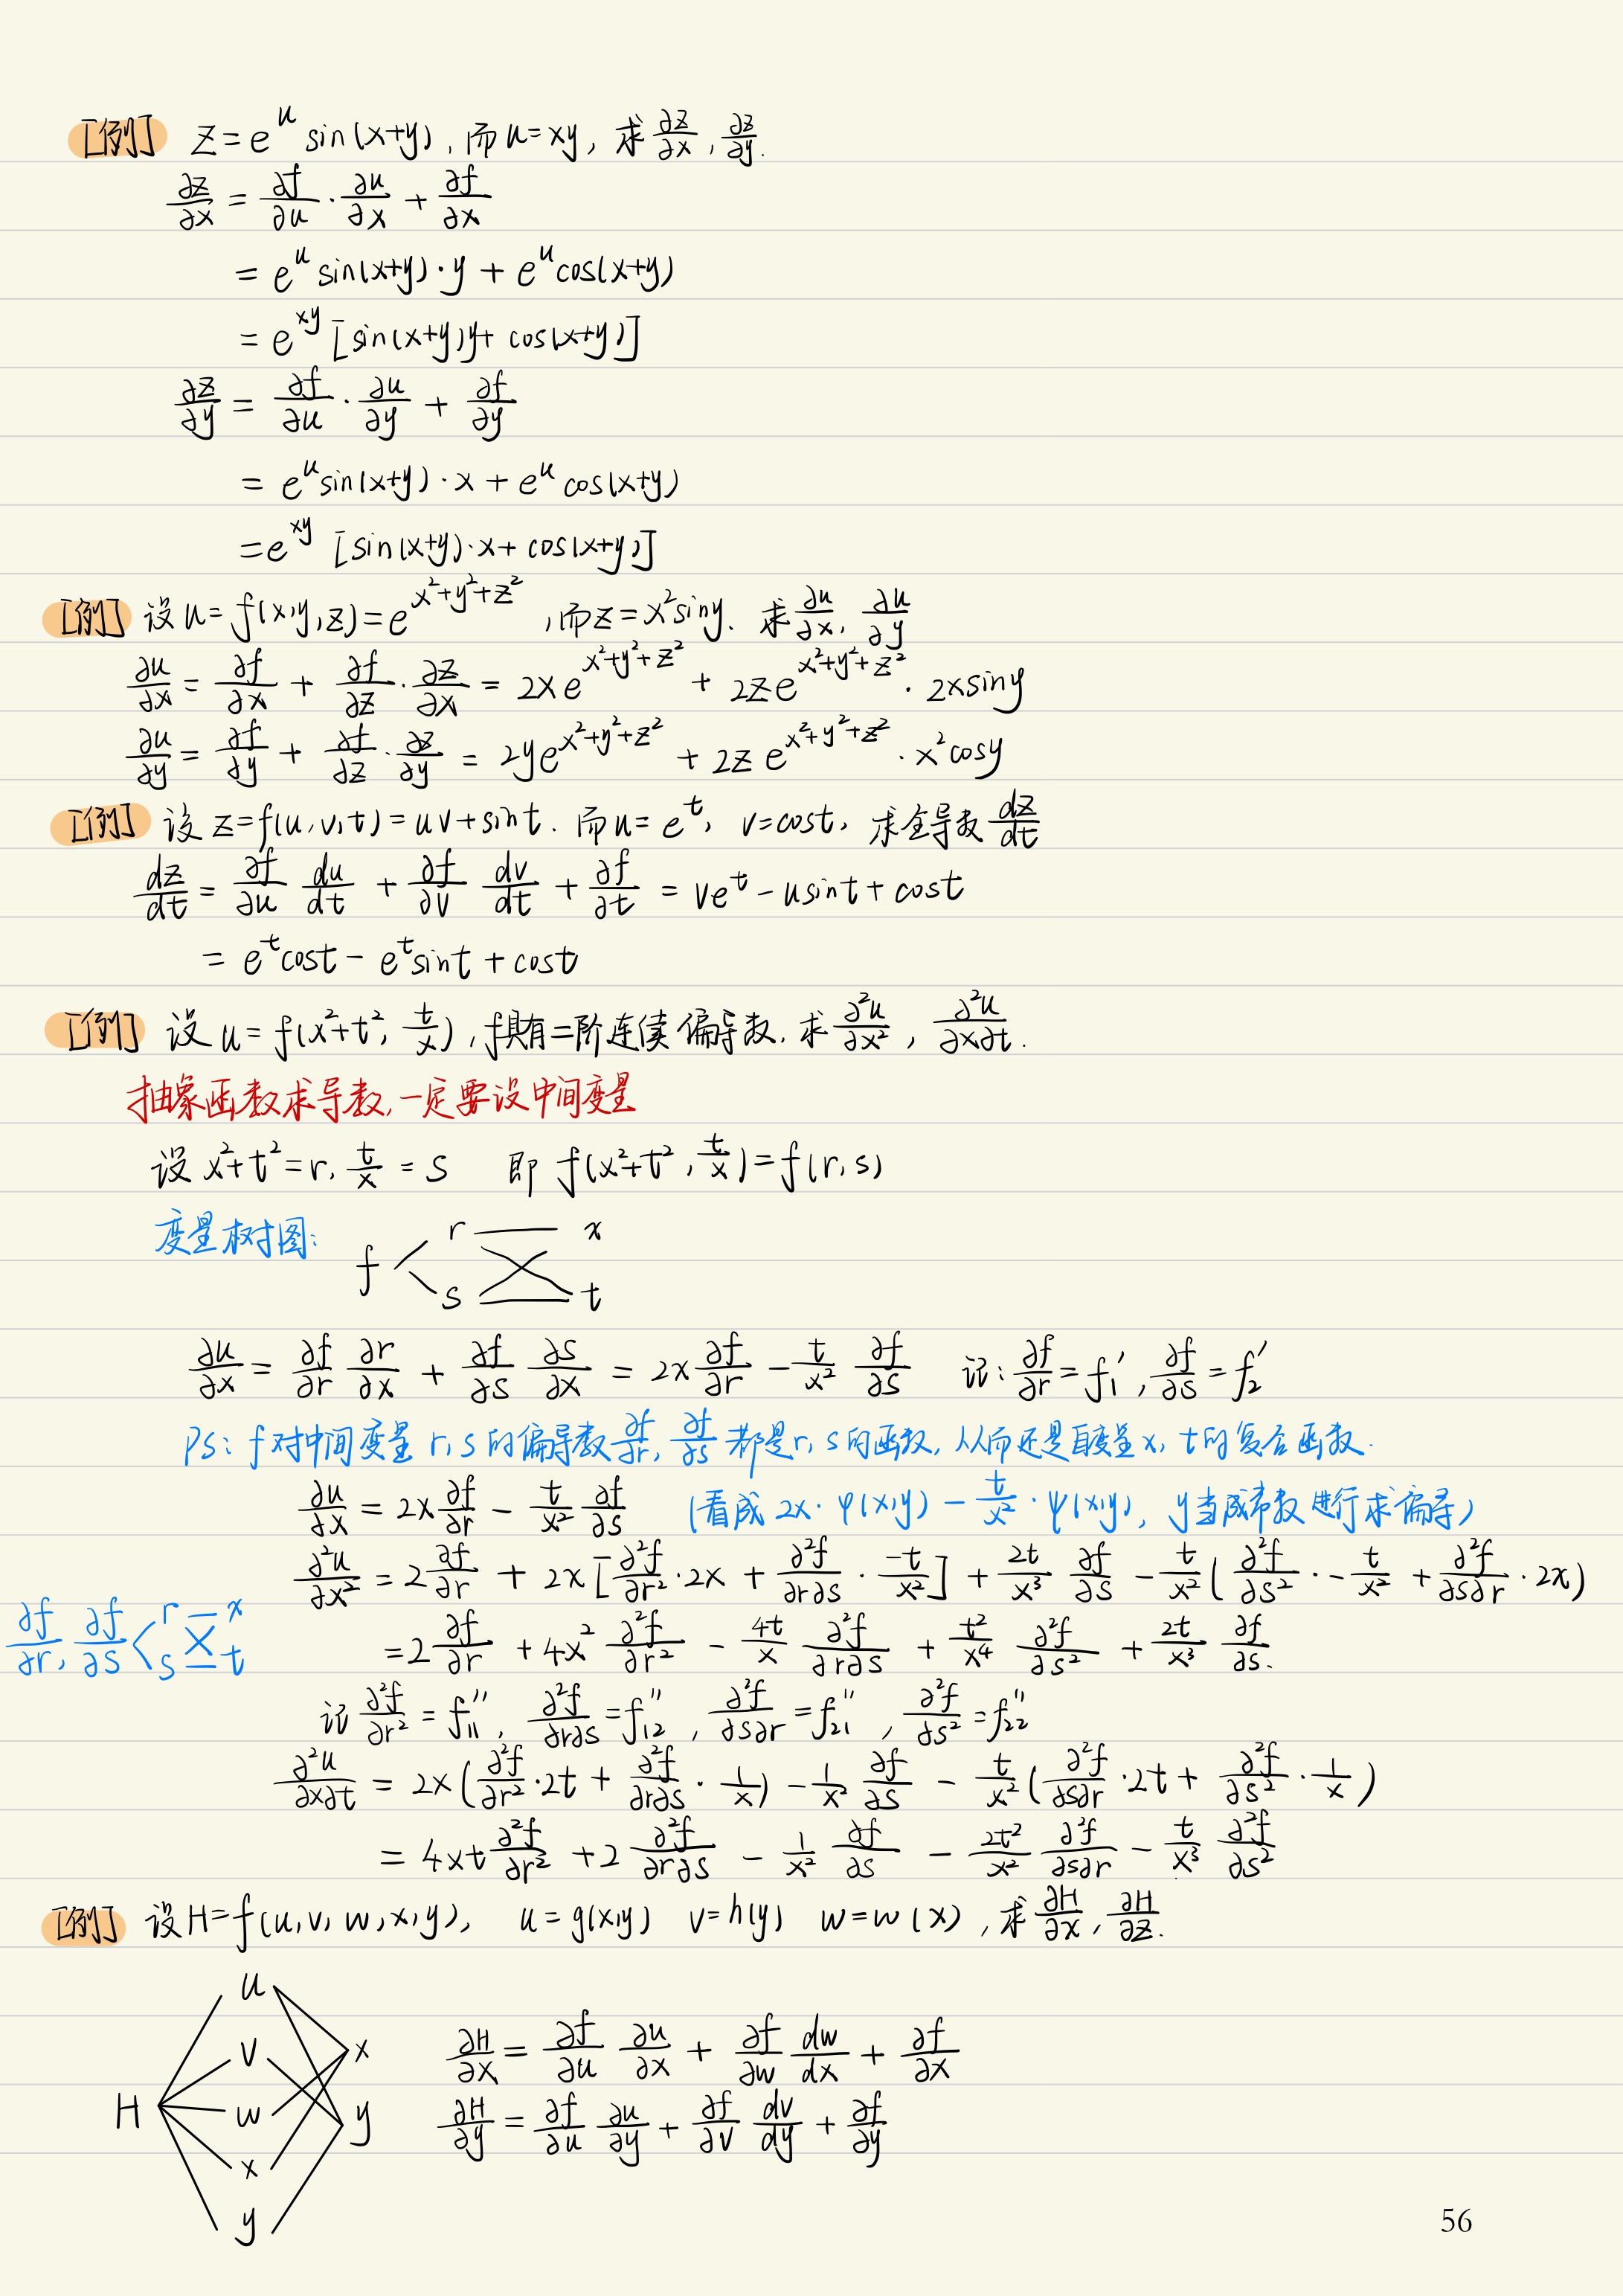 [例] z=e^u sin(x+y), 而u=xy, 求 ∂z/∂x, ∂z/∂y.
∂z/∂x = ∂f/∂u · ∂u/∂x + ∂f/∂x
= e^u sin(x+y)·y + e^u cos(x+y)
= e^xy [sin(x+y)y+ cos(x+y)]
∂z/∂y = ∂f/∂u · ∂u/∂y + ∂f/∂y
= e^u sin(x+y)·x + e^u cos(x+y)
= e^xy [sin(x+y)·x+ cos(x+y)]
[例] 设 u= f(x,y,z)=e^(x²+y²+z²), 而z=x²siny. 求 ∂u/∂x, ∂u/∂y
∂u/∂x = ∂f/∂x + ∂f/∂z · ∂z/∂x = 2xe^(x²+y²+z²) + 2ze^(x²+y²+z²) · 2xsiny
∂u/∂y = ∂f/∂y + ∂f/∂z · ∂z/∂y = 2ye^(x²+y²+z²) + 2ze^(x²+y²+z²) · x²cosy
[例] 设 z=f(u,v,t)=uv+sint. 而u=e^t, v=cost, 求全导数 dz/dt
dz/dt = ∂f/∂u du/dt + ∂f/∂v dv/dt + ∂f/∂t = ve^t - usint + cost
= e^t cost - e^t sint + cost
[例] 设 u= f(x²+t², t/x), f具有二阶连续偏导数, 求 ∂²u/∂x², ∂²u/∂x∂t.
抽象函数求导数,一定要设中间变量
设 x²+t²=r, t/x = s 即 f(x²+t², t/x)=f(r,s)
变量树图:
f r x
s t
∂u/∂x = ∂f/∂r ∂r/∂x + ∂f/∂s ∂s/∂x = 2x ∂f/∂r - t/x² ∂f/∂s 记: ∂f/∂r = f₁', ∂f/∂s = f₂'
PS: f对中间变量 r,s的偏导数 ∂f/∂r, ∂f/∂s 都是r,s的函数, 从而还是自变量x, t的复合函数.
∂u/∂x = 2x ∂f/∂r - t/x² ∂f/∂s (看成 2x·φ(x,y) - t/x² · ψ(x,y), y当成常数进行求偏导)
∂²u/∂x² = 2 ∂f/∂r + 2x [∂²f/∂r² · 2x + ∂²f/∂r∂s · -t/x²] + 2t/x³ ∂f/∂s - t/x² (∂²f/∂s² · - t/x² + ∂²f/∂s∂r · 2x)
∂f/∂r, ∂f/∂s r x s t
= 2 ∂f/∂r + 4x² ∂²f/∂r² - 4t/x ∂²f/∂r∂s + t²/x⁴ ∂²f/∂s² + 2t/x³ ∂f/∂s.
记 ∂²f/∂r² = f₁₁'', ∂²f/∂r∂s = f₁₂'', ∂²f/∂s∂r = f₂₁'', ∂²f/∂s² = f₂₂''
∂²u/∂x∂t = 2x (∂²f/∂r² · 2t + ∂²f/∂r∂s · 1/x) - 1/x² ∂f/∂s - t/x² (∂²f/∂s∂r · 2t + ∂²f/∂s² · 1/x)
= 4xt ∂²f/∂r² + 2 ∂²f/∂r∂s - 1/x² ∂f/∂s - 2t²/x² ∂²f/∂s∂r - t/x³ ∂²f/∂s²
[例] 设 H=f(u,v,w,x,y), u=g(x,y) v=h(y) w=w(x), 求 ∂H/∂x, ∂H/∂z.
u
v x
∂H/∂x = ∂f/∂u ∂u/∂x + ∂f/∂w dw/dx + ∂f/∂x
H w y
∂H/∂y = ∂f/∂u ∂u/∂y + ∂f/∂v dv/dy + ∂f/∂y
x
y
56